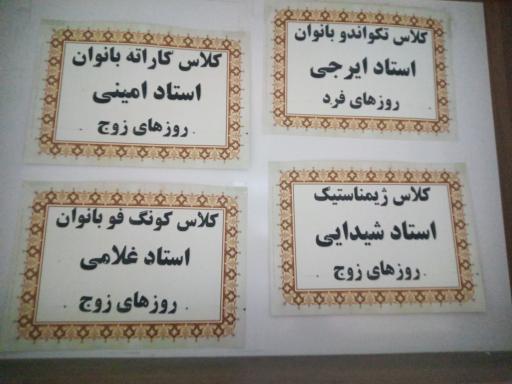 کلاس تکواندو بانوان
استاد ایرجی
روزهای فرد
کلاس کاراته بانوان
استاد امینی
روزهای زوج
کلاس ژیمناستیک
استاد شیدایی
روزهای زوج
کلاس کونگ فو بانوان
استاد غلامی
روزهای زوج